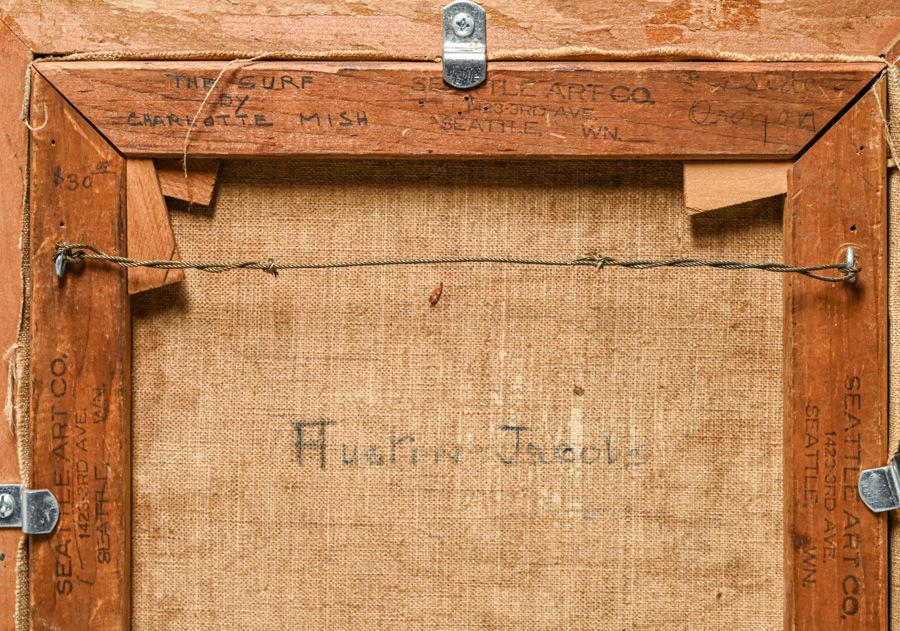 THE SURF
BY
CHARLOTTE MISH
SEATTLE ART CO.
1423-3RD AVE.
SEATTLE, WN.
Oregon
$30
SEATTLE ART CO.
1423-3RD AVE.
SEATTLE, WN.
Austin Jacobs
SEATTLE ART CO.
1423-3RD AVE.
SEATTLE, WN.